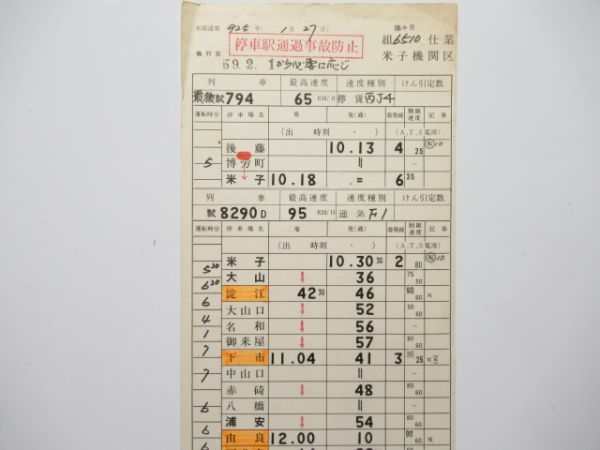 米鉄達第 925 号( 1 月 27 日)
臨キロ
組6510 仕業
停車駅通過事故防止
米子機関区
施行日
59.2. 1から必要に応じ
列 車 最高速度 速度種別 けん引定数
試794 65 KM/H 停 貨 丙J4
運転時分 停車場名 着 発(通) 着発線 制限速度 記事
(出 時刻 ・ ) (A.T.S電源)
後 藤 10.13 4 25 10
5 博労町 ‖ ~
米 子 10.18 ・= 6 35
列 車 最高速度 速度種別 けん引定数
試 8290D 95 KM/H 通 気 F1
運転時分 停車場名 着 発(通) 着発線 制限速度 記事
(出 時刻 ・ ) (A.T.S電源)
米 子 10.30 30 2 80 10
5 30 大 山 ↓ 36 75 50
6 30 淀 江 42 30 46 90 60 ×
6 大山口 ↓ 52 50 60
4 名 和 ↓ 56 ~
1 御来屋 ↓ 57 80 60
7 下 市 11.04 41 3 30 25 ×8
7 中山口 ‖ ~
赤 碕 ↓ 48 80 60
6 八 橋 ‖ ~
浦 安 ↓ 54 80 60
6 由 良 12.00 10 90 60 ×